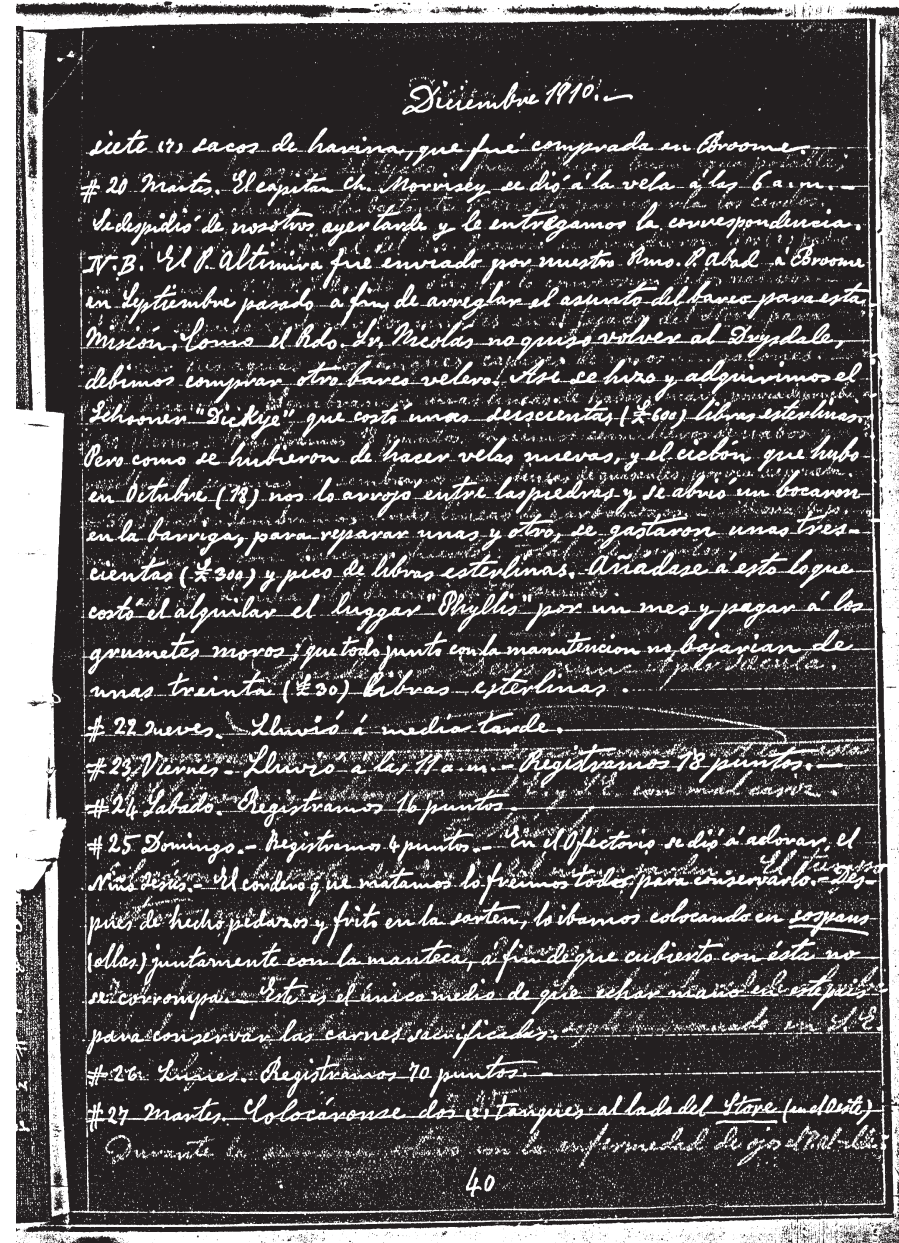 Diciembre 1910.—
siete (7) sacos de harina, que fué comprada en Broome.
# 20 Martes. El capitan Ch. Morrisey se dió á la vela á las 6 a.m. —
Se despidió de nosotros ayer tarde y le entregamos la correspondencia.
N.B. El P. Altimira fué enviado por nuestro Rmo. P. Abad á Broome
en Septiembre pasado á fin de arreglar el asunto del barco para esta
Misión. Como el Rdo. Sr. Nicolás no quiso volver al Drysdale,
debimos comprar otro barco velero. Asi se hizo y adquirimos el
Schooner "Dickye" que costó unas seiscientas (£600) libras esterlinas.
Pero como se hubieron de hacer velas nuevas, y el ciclón que hubo
en Octubre (18) nos lo arrojó entre las piedras y se abrió un bocaron
en la barriga, para reparar unas y otro, se gastaron unas tres-
cientas (£300) y pico de libras esterlinas. Añádase á esto lo que
costó el alquilar el luggar "Phyllis" por un mes y pagar á los
grumetes moros; que todo junto con la manutencion no bajarian de
unas treinta (£30) libras esterlinas.
# 22 Jueves. Lluvió á media tarde.
# 23 Viernes - Lluvió a las 11 a.m. - Registramos 18 puntos. —
# 24 Sabado. Registramos 16 puntos.
# 25 Domingo. - Registramos 4 puntos. - En el Ofertorio se dió á adorar, el
Niño Jesús. - El cordero que matamos lo freimos todo para conservarlo. - Des-
pues de hecho pedazos y frito en la sarten, lo ibamos colocando en sospans
(ollas) juntamente con la manteca, á fin de que cubierto con ésta no
se corrompa. Este es el único medio de que echar mano en este pais
para conservar las carnes sacrificadas.
# 26 Lunes. Registramos 70 puntos. —
# 27 Martes. Colocáronse dos (2) tanques al lado del Store (en el Oeste)
Durante la semana con la enfermedad de ojos el P.
40